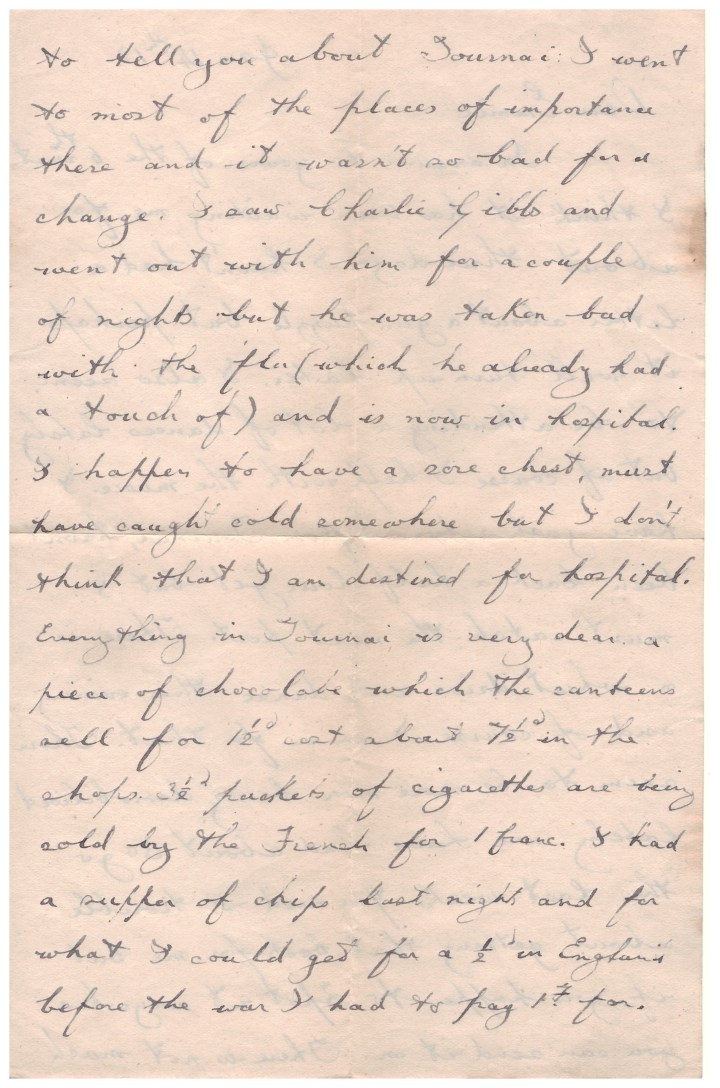 to tell you about Tournai. I went
to most of the places of importance
there and it wasn't so bad for a
change. I saw Charlie Gibbs and
went out with him for a couple
of nights but he was taken bad
with the 'flu (which he already had
a touch of) and is now in hospital.
I happen to have a sore chest, must
have caught cold somewhere but I don't
think that I am destined for hospital.
Everything in Tournai is very dear. a
piece of chocolate which the canteens
sell for 1½d cost about 7½d in the
shops. 3½d packets of cigarettes are being
sold by the French for 1 franc. I had
a supper of chips last night and for
what I could get for a ½d in England
before the war I had to pay 1F for.